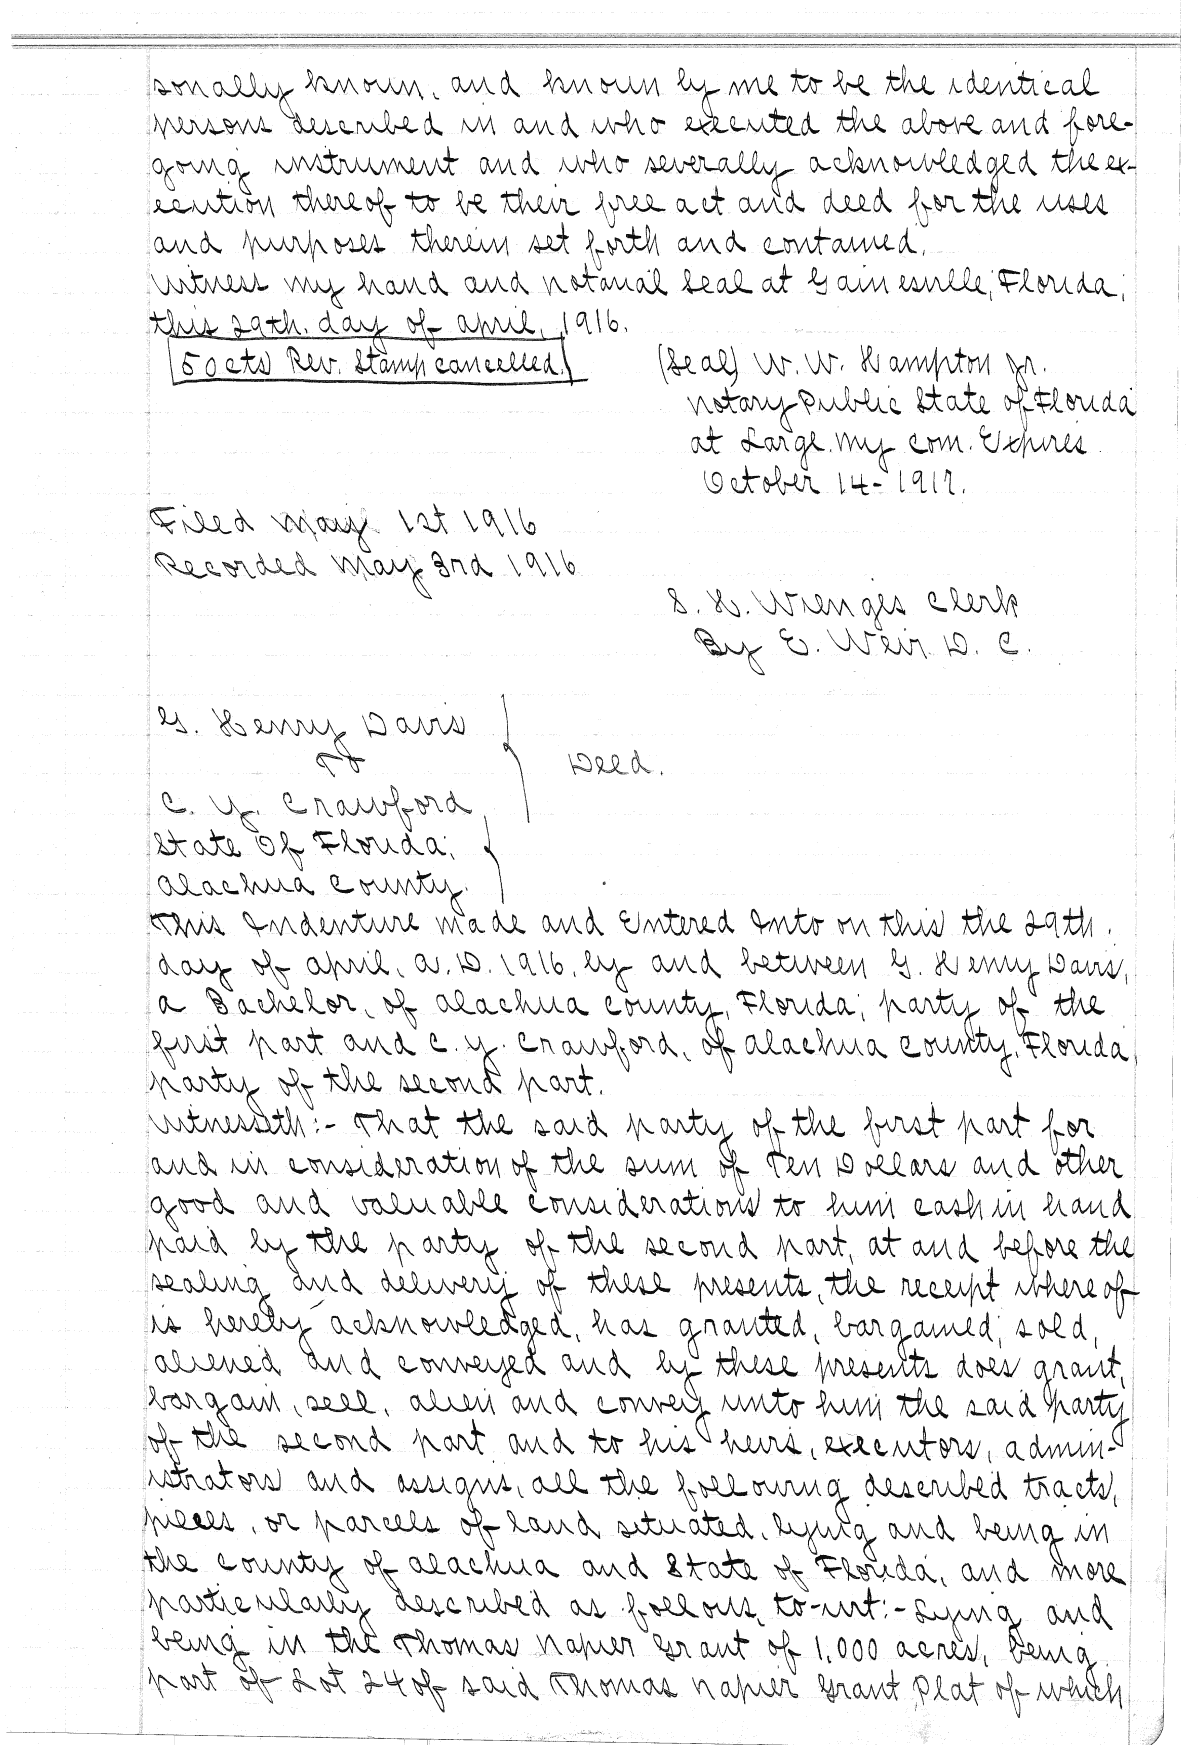 sonally known, and known by me to be the identical
persons described in and who executed the above and fore-
going instrument and who severally acknowledged the ex-
ecution thereof to be their free act and deed for the uses
and purposes therein set forth and contained.
Witness my hand and notarial seal at Gainesville, Florida,
this 29th. day of april, 1916.
50 cts Rev. Stamp cancelled.
(Seal) W. W. Hampton Jr.
Notary Public State of Florida
at Large. My com. Expires
October 14-1917.
Filed May 1st 1916
Recorded May 3rd 1916
S. H. Wienges Clerk
By E. Weir. D. C.
G. Henry Davis
To
Deed.
C. Y. Crawford
State Of Florida,
Alachua County.
This Indenture made and Entered Into on this the 29th.
day of april, A.D. 1916, by and between G. Henry Davis,
a Bachelor, of Alachua County, Florida, party of the
first part and C. Y. Crawford, of Alachua County, Florida
party of the second part.
Witnesseth:- That the said party of the first part for
and in consideration of the sum of Ten Dollars and other
good and valuable considerations to him cash in hand
paid by the party of the second part, at and before the
sealing and delivery of these presents, the receipt whereof
is hereby acknowledged, has granted, bargained, sold,
aliened and conveyed and by these presents does grant,
bargain, sell, alien and convey unto him the said party
of the second part and to his heirs, executors, admin-
istrators and assigns, all the following described tracts,
pieces, or parcels of land situated, lying and being in
the County of Alachua and State of Florida, and more
particularly described as follows, to-wit:- Lying and
being in the Thomas Napier Grant of 1,000 acres, being
part of Lot 24 of said Thomas Napier Grant, Plat of which